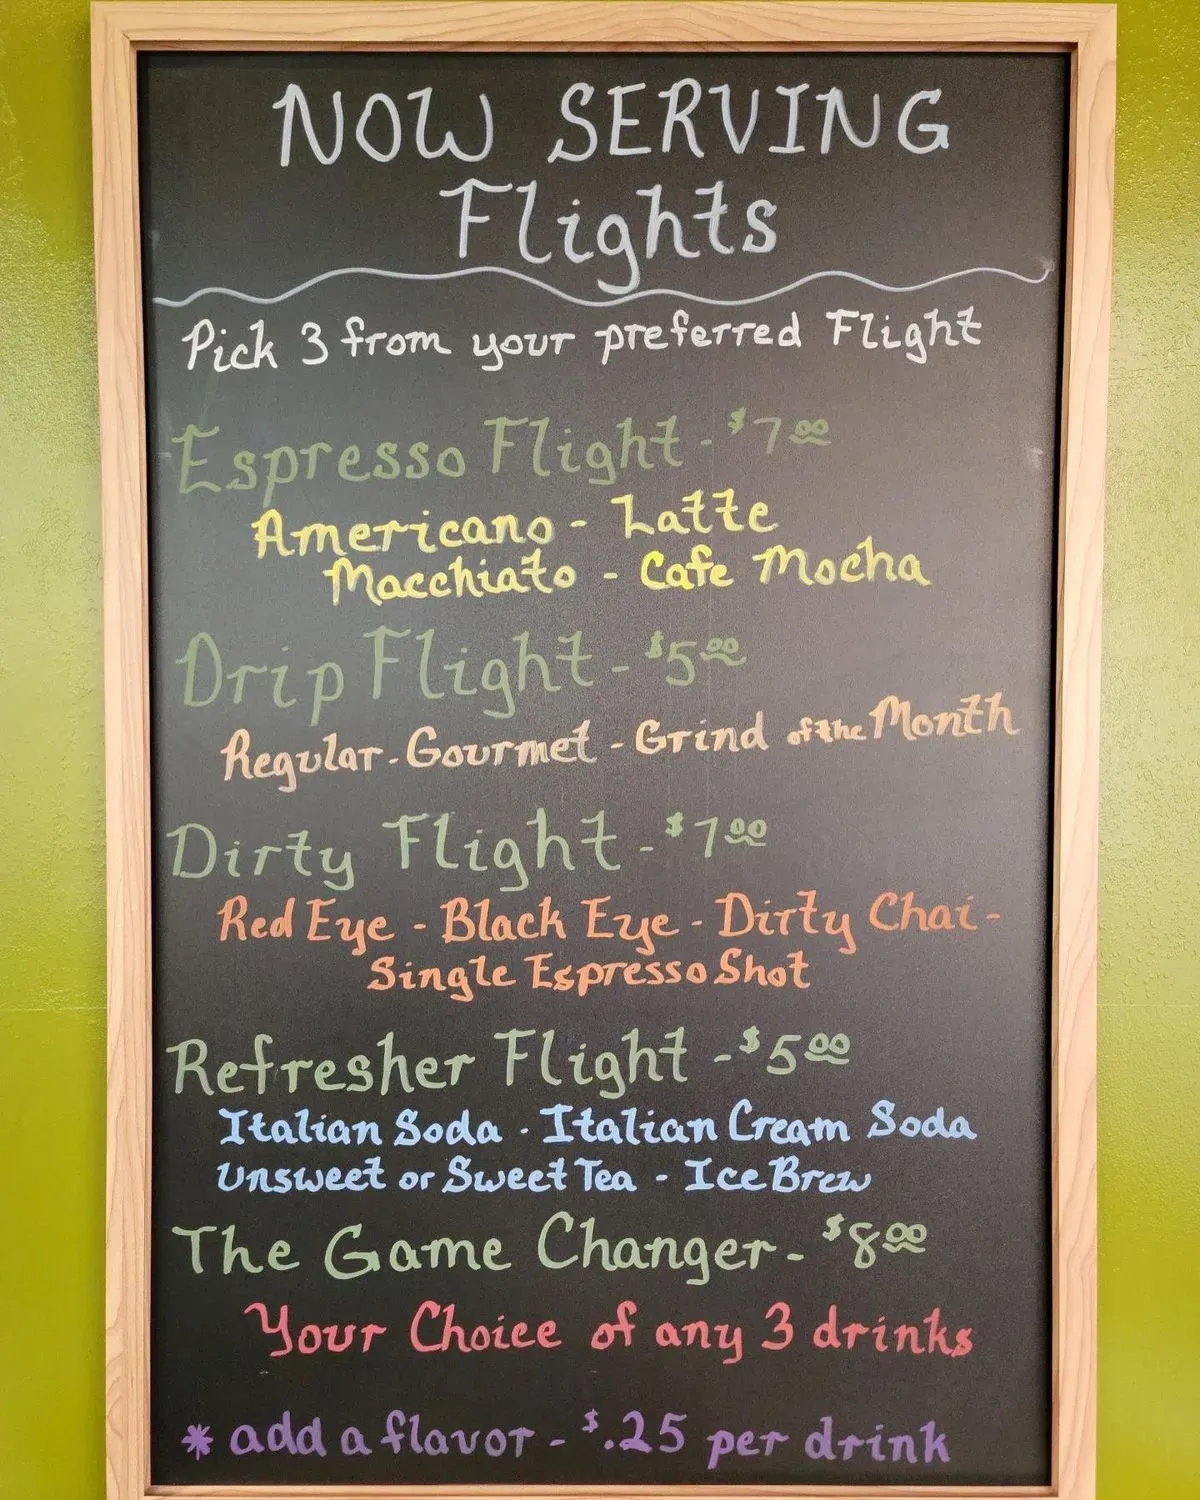 NOW SERVING
Flights
Pick 3 from your preferred Flight
Espresso Flight - $7.00
Americano - Latte
Macchiato - Cafe Mocha
Drip Flight - $5.00
Regular - Gourmet - Grind of the Month
Dirty Flight - $7.00
Red Eye - Black Eye - Dirty Chai -
Single Espresso Shot
Refresher Flight - $5.00
Italian Soda - Italian Cream Soda
Unsweet or Sweet Tea - Ice Brew
The Game Changer - $8.00
Your Choice of any 3 drinks
* add a flavor - $.25 per drink